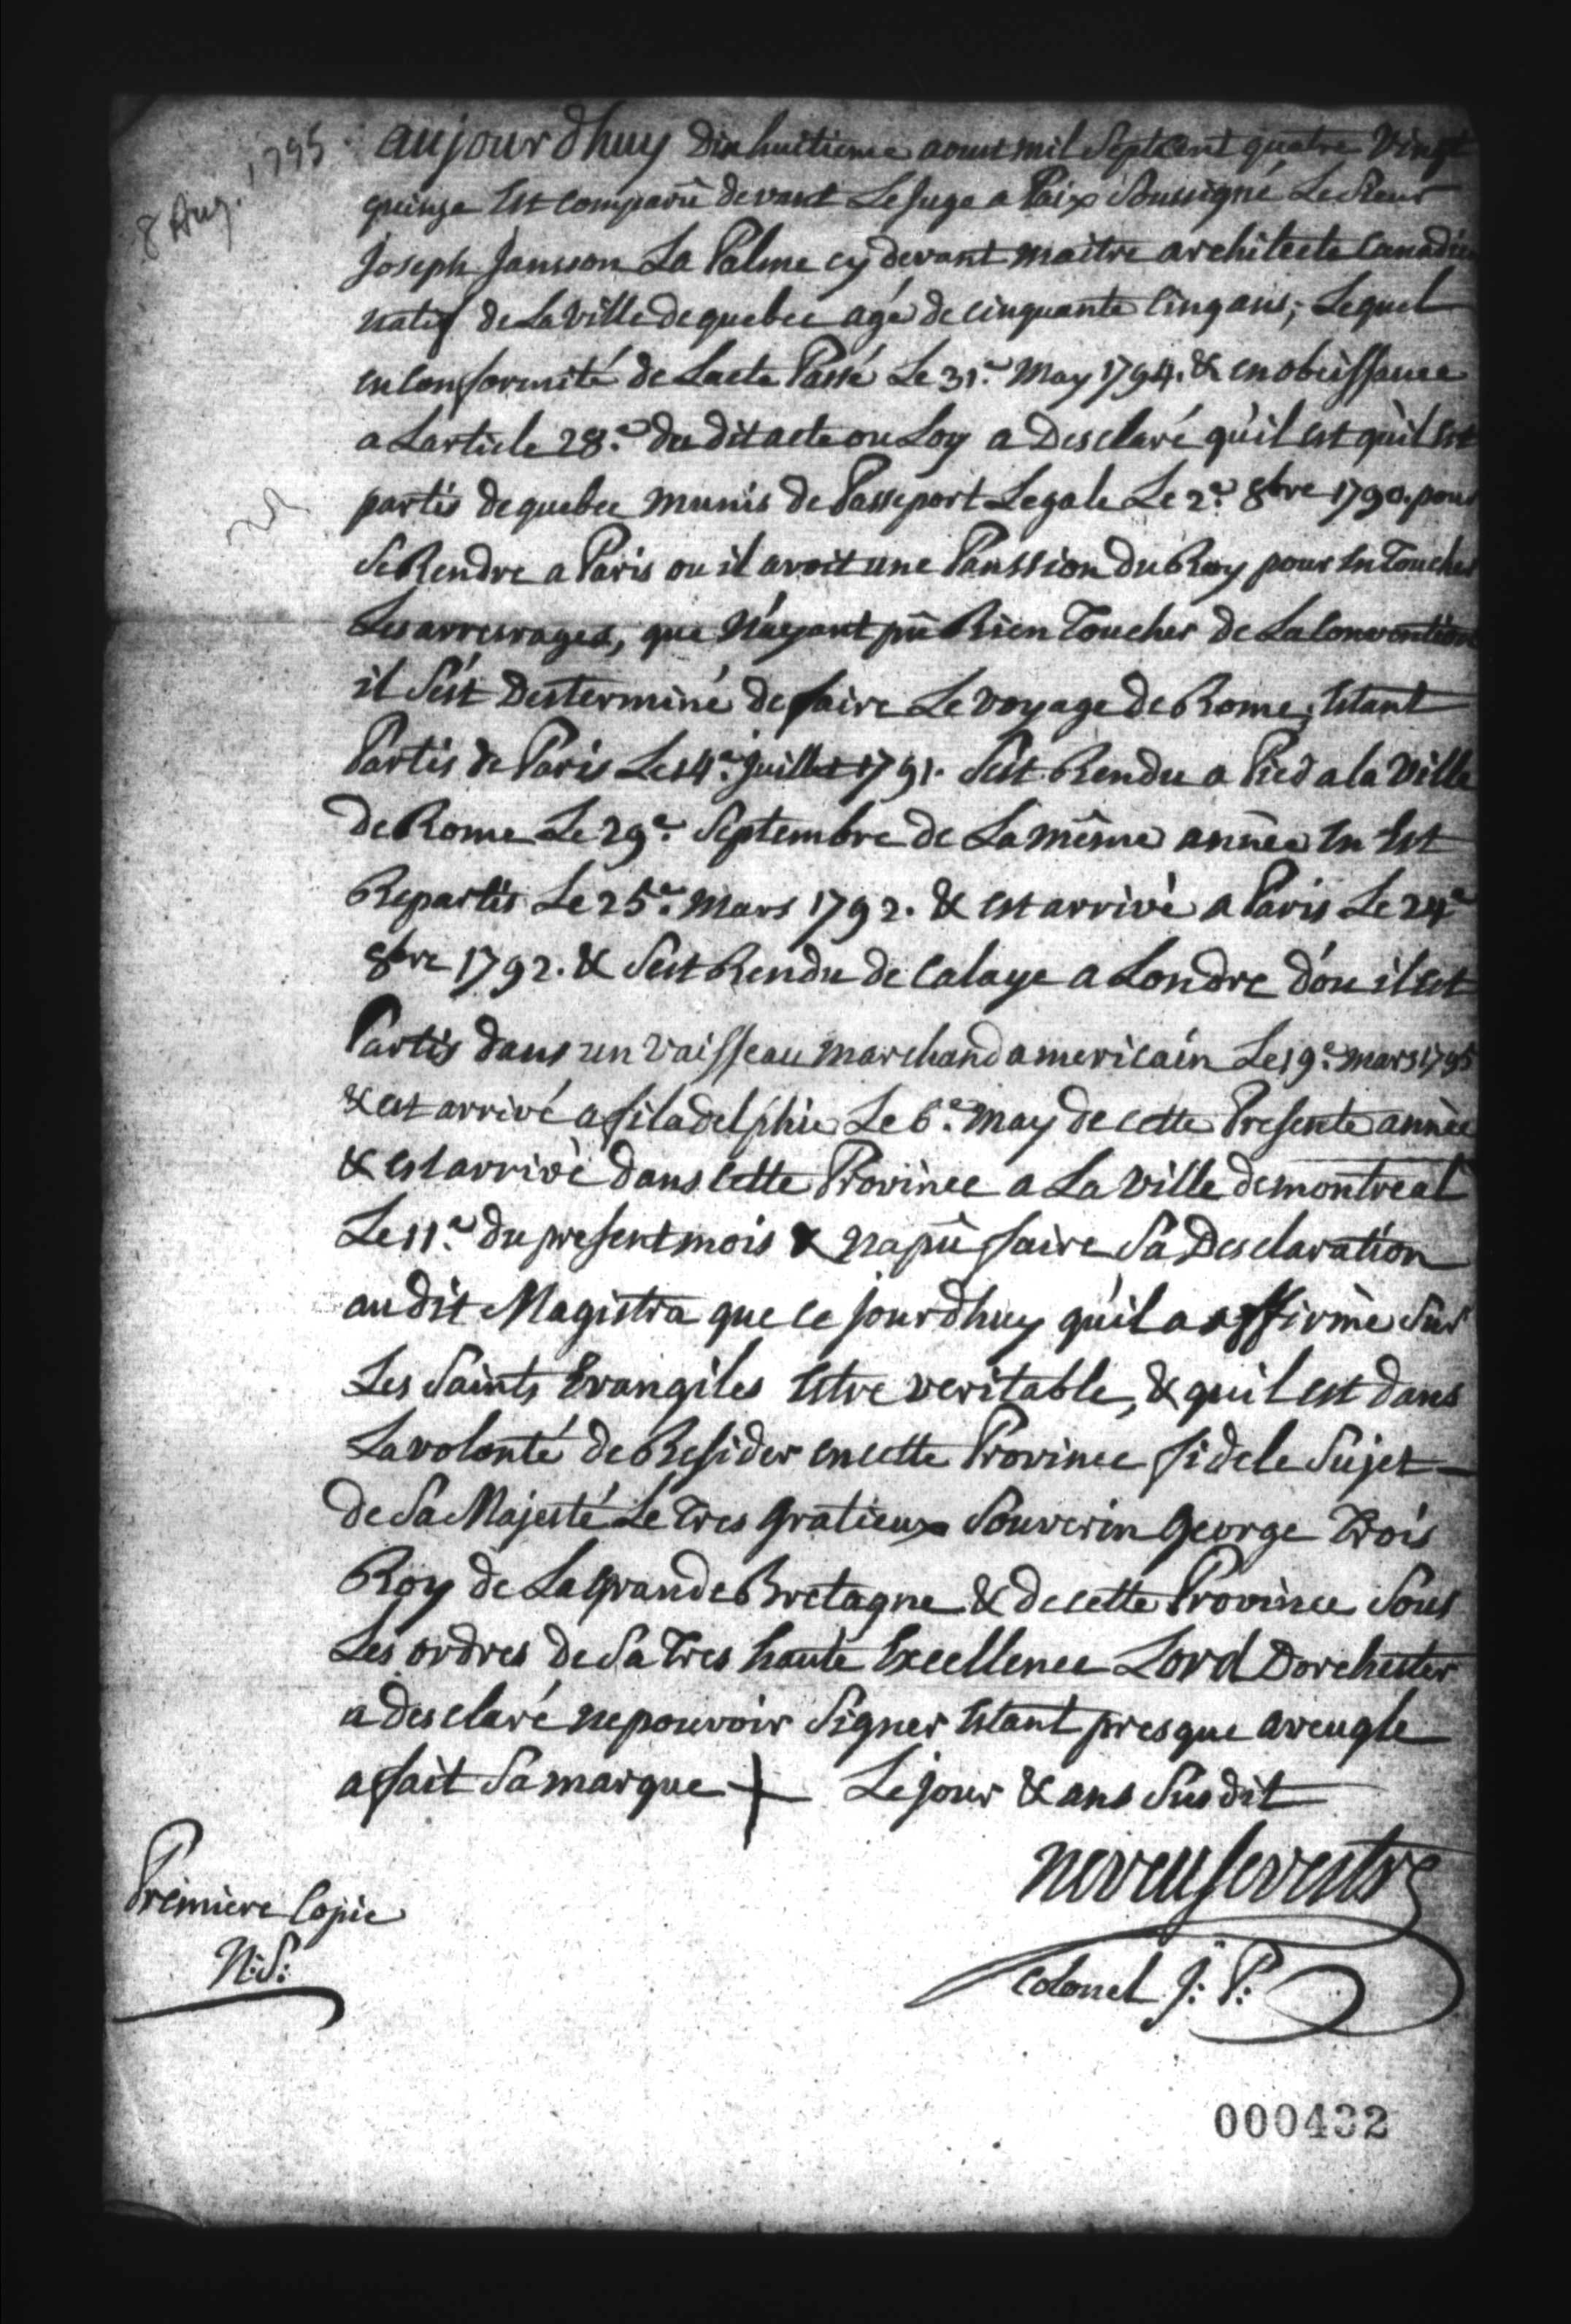 8 Aug. 1795
aujourdhuy dixhuitieme aoust mil Septcent quatre Vingt
quinze Est comparû devant Le Juge a Paix Soussigné Le Sieur
Joseph Jansson La Palme cy devant maitre architecte Canadien
natif de La Ville de quebec agé de cinquante Cinq ans; Lequel
en Conformité de Lacte Passé Le 31.e May 1794. & en obeissance
a Larticle 28.e du dit acte ou Loy a Desclaré qu'il est qu'il est
partis de quebec munis de Passeport Legale Le 2.e 8bre 1790. pour
Se Rendre a Paris ou il avoit une Panssion du Roy pour En Toucher
Les arresrages, que N'ayant pû Rien Toucher de La Convention
il S'est Desterminé de faire Le voyage de Rome, Estant
Partis de Paris Le 14.e Juillet 1791. Sest Rendu a Pied a la Ville
de Rome Le 29.e Septembre de La même année En Est
Repartis Le 25.e Mars 1792. & est arrivé a Paris Le 24.e
8bre 1792. & Sest Rendu de Calaye a Londre d'ou il est
Partis dans un Vaisseau marchand americain Le 19.e mars 1795
& est arrivé a filadelphie Le 6.e May de cette Presente année
& est arrivé dans Cette Province a La Ville de montreal
Le 11.e du present mois & Na pû faire Sa Desclaration
au dit Magistra que ce jourdhuy qu'il a affirmé Sur
Les Saints Evangiles Estre veritable, & quil est dans
La volonté de Resider en cette Province fidele Sujet
de Sa Majesté Le Tres Gratieux Souverin George Trois
Roy de La Grande Bretagne & de cette Province Sous
Les ordres de Sa Tres haute Excellence Lord Dorchester
a desclaré ne pouvoir Signer Estant presque aveugle
a fait Sa marque + Le jour & ans Susdit
neveu Sevestre
Colonel J: P:
Premiere Copie
N: S:
000432